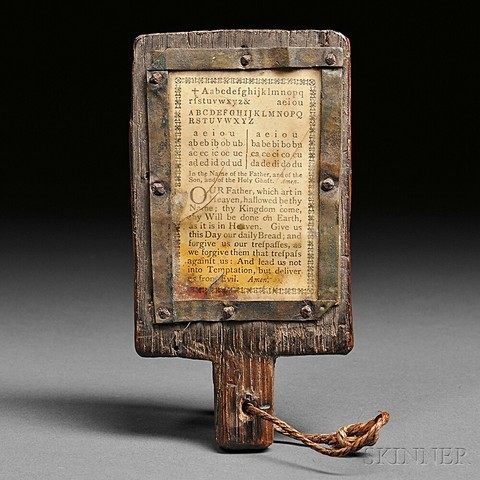 ✝ Aabcdefghijklmnopq
rſstuvwxyz& aeiou
ABCDEFGHIJKLMNOPQ
RSTUVWXYZ
a e i o u | a e i o u
ab eb ib ob ub | ba be bi bo bu
ac ec ic oc uc | ca ce ci co cu
ad ed id od ud | da de di do du
In the Name of the Father, and of the
Son, and of the Holy Ghoſt. Amen.
OUR Father, which art in
Heaven, hallowed be thy
Name; thy Kingdom come,
thy Will be done on Earth,
as it is in Heaven. Give us
this Day our daily Bread; and
forgive us our treſpaſſes, as
we forgive them that treſpaſs
againſt us: And lead us not
into Temptation, but deliver
us from Evil. Amen.
SKINNER